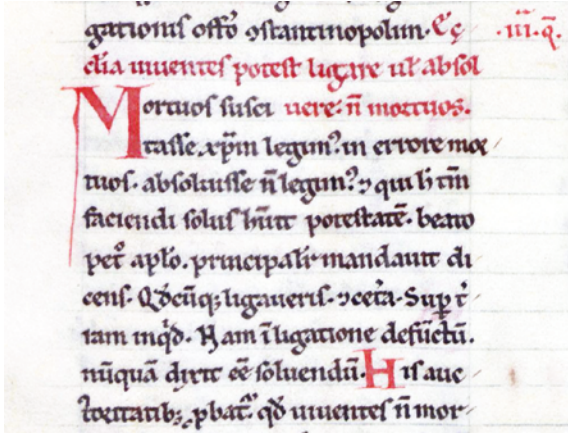 gationis offõ ↄstantinopolim. Eccͅ .iii.q̃.
clia uiuentes potest ligare ul̃ absol
Mortuos susci uere: ñ mortuos.
tasse xp̃m legimꝰ. in errore mor
tuos. absoluisse ñ legimꝰ. ⁊ qui h̾ tm̃
faciendi solus hũit potestatẽ. beato
pet̾ aplõ. principalit̾ mandauit di
cens. Qd̾cũq; ligaueris. ⁊ ceta. Sup t̾
ram inq̾d. Nam ĩ ligatione defũctũ.
nũquã dixit eẽ soluendũ. His auc
toritatib; ꝓbat᷑ qd̾ uiuentes ñ mor